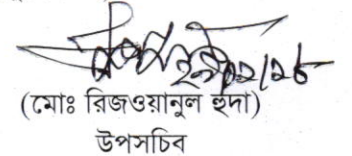 (মোঃ রিজওয়ানুল হুদা)
উপসচিব